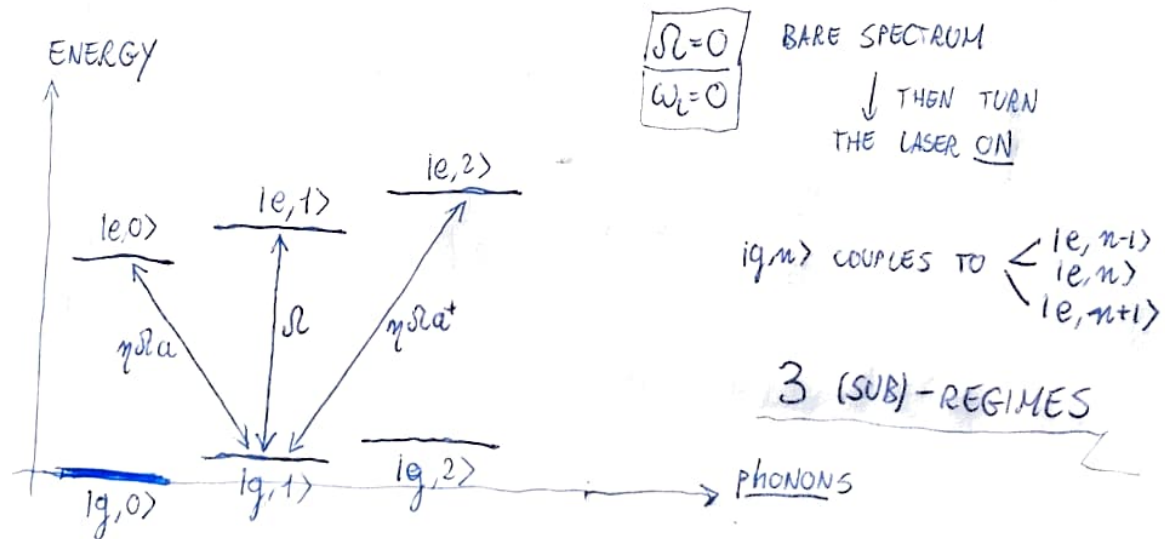 ENERGY
Ω=0
ω_L=0
BARE SPECTRUM
↓ THEN TURN
THE LASER ON
|e,0⟩
|e,1⟩
|e,2⟩
ηΩa
Ω
ηΩa⁺
|g,n⟩ COUPLES TO
|e, n-1⟩
|e, n⟩
|e, n+1⟩
3 (SUB)-REGIMES
|g,0⟩
|g,1⟩
|g,2⟩
phONONS